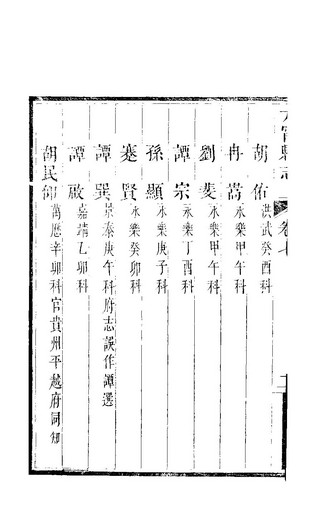 大寧縣志 卷七 十二
胡佑 洪武癸酉科
冉嵩 永樂甲午科
劉斐 永樂甲午科
譚宗 永樂丁酉科
孫顯 永樂庚子科
蹇賢 永樂癸卯科
譚巽 景泰庚午科府志誤作譚選
譚啟 嘉靖乙卯科
胡民仰 萬歷辛卯科官貴州平越府同知